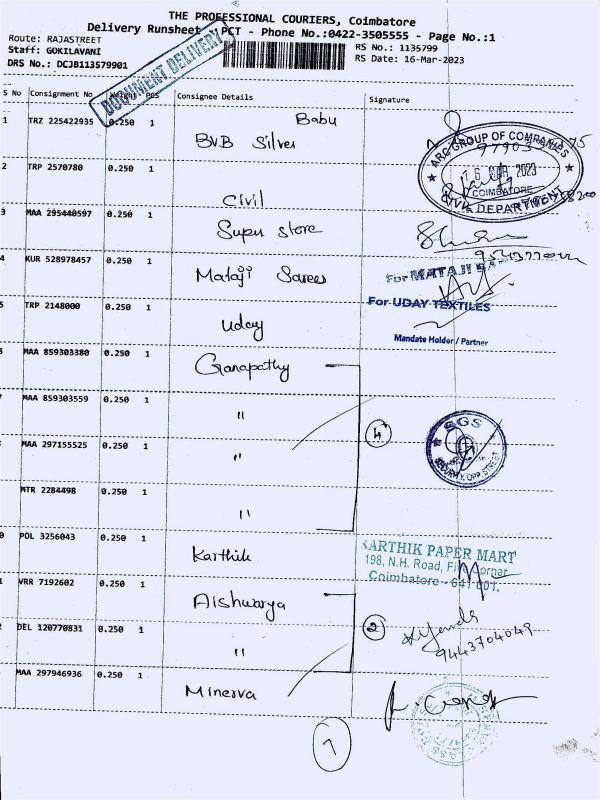 THE PROFESSIONAL COURIERS, Coimbatore
Delivery Runsheet PCT - Phone No.:0422-3505555 - Page No.:1
Route: RAJASTREET
Staff: GOKILAVANI
DRS No.: DCJB113579901
RS No.: 1135799
RS Date: 16-Mar-2023
DOCUMENT DELIVERY
S No Consignment No Weight PCS Consignee Details Signature
1 TRZ 225422935 0.250 1 Babu
BVB Silver
ARC GROUP OF COMPANIES
16 MAR 2023
COIMBATORE
CIVIL DEPARTMENT
2 TRP 2570780 0.250 1
Civil
3 MAA 295440597 0.250 1 Super store
4 KUR 528978457 0.250 1 Mataji Sarees
For MATAJI
5 TRP 2148000 0.250 1 Uday
For UDAY TEXTILES
Mandate Holder / Partner
MAA 859303380 0.250 1 Ganapathy
MAA 859303559 0.250 1 "
4
MAA 297155525 0.250 1 "
SGS
SECURITY, OPP. STREET
MTR 2284498 0.250 1 "
0 POL 3256043 0.250 1 Karthik
KARTHIK PAPER MART
198, N.H. Road, Five Corner
Coimbatore - 641 001.
1 VRR 7192602 0.250 1 Aishwarya
2
DEL 120770831 0.250 1 "
9443704049
MAA 297946936 0.250 1 Minerva